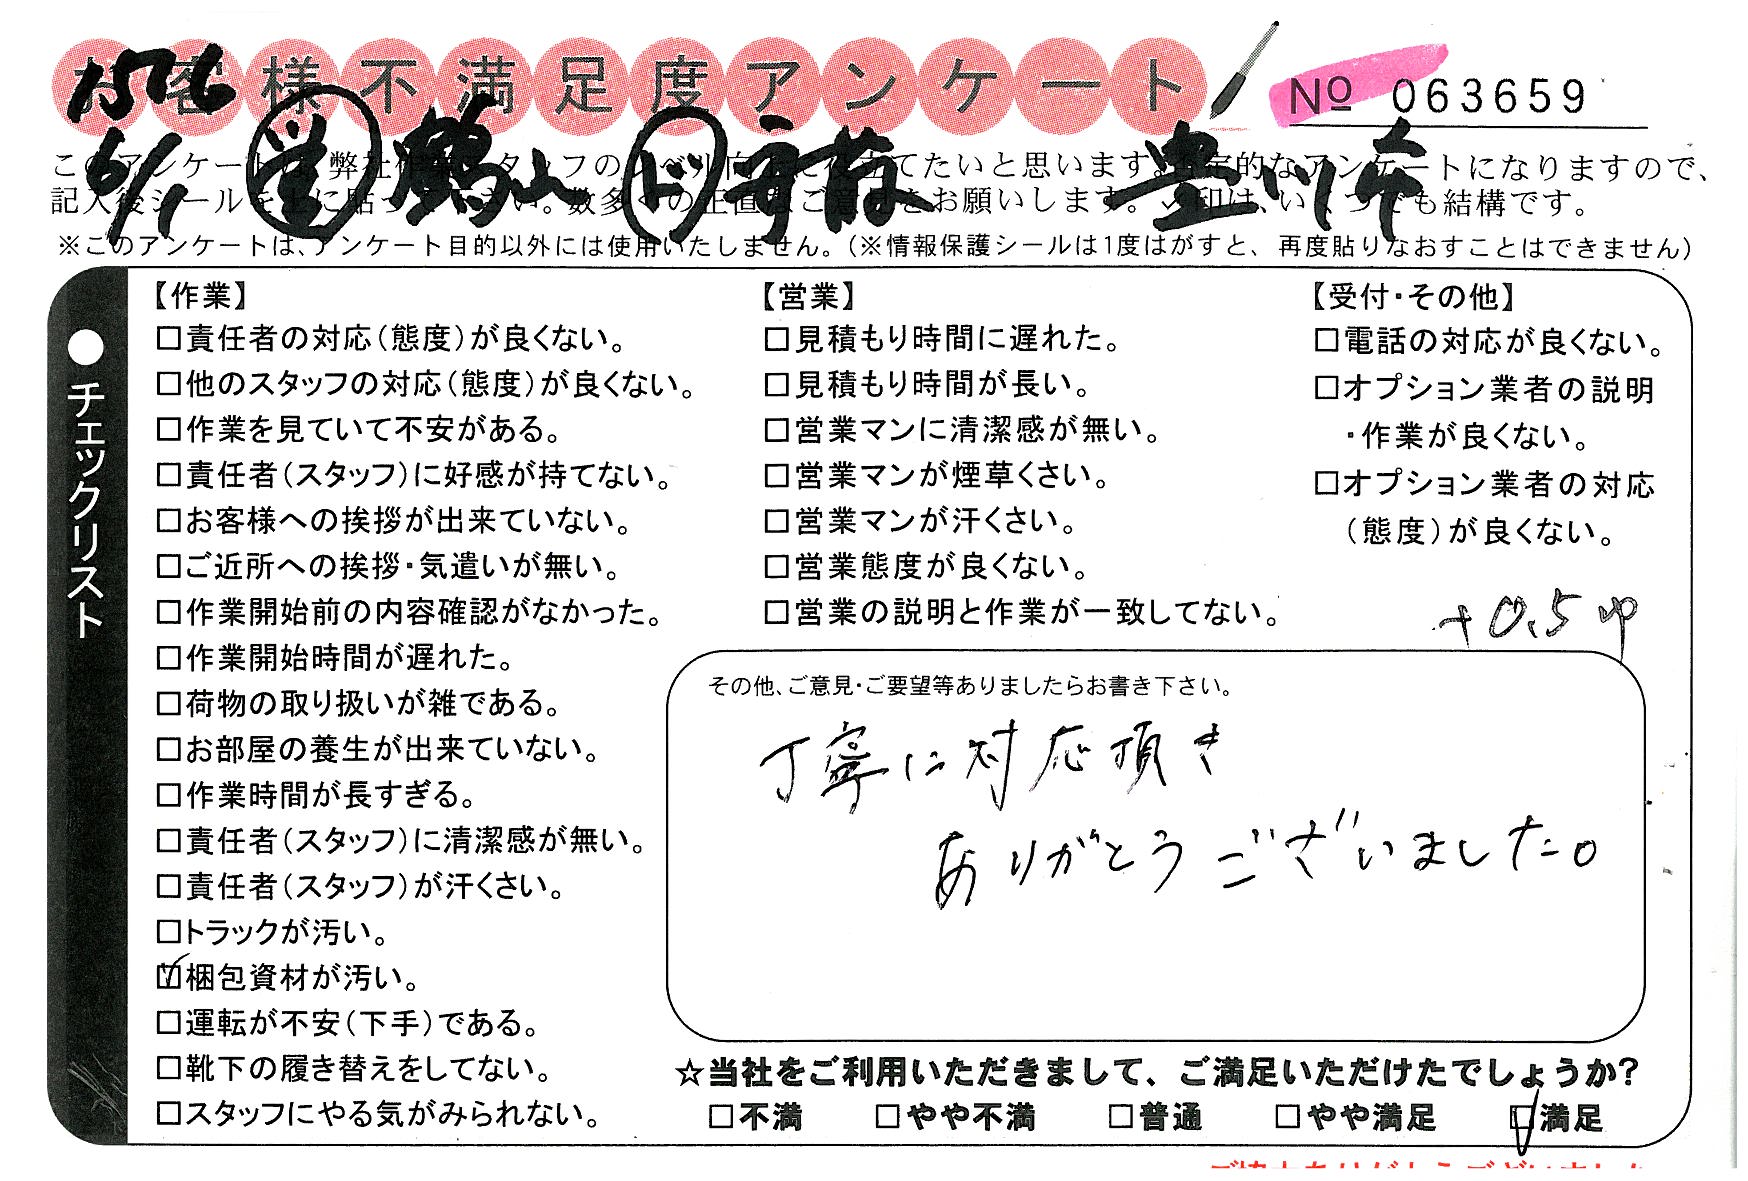 お客様不満足度アンケート
No 063659
1576
6/1
鶴山
豊川市
このアンケートは、弊社作業スタッフのレベル向上に役立てたいと思います。否定的なアンケートになりますので、
記入後シールを上に貼って下さい。数多くの正直なご意見をお願いします。✓印は、いくつでも結構です。
※このアンケートは、アンケート目的以外には使用いたしません。(※情報保護シールは1度はがすと、再度貼りなおすことはできません)
●チェックリスト
【作業】
□責任者の対応(態度)が良くない。
□他のスタッフの対応(態度)が良くない。
□作業を見ていて不安がある。
□責任者(スタッフ)に好感が持てない。
□お客様への挨拶が出来ていない。
□ご近所への挨拶・気遣いが無い。
□作業開始前の内容確認がなかった。
□作業開始時間が遅れた。
□荷物の取り扱いが雑である。
□お部屋の養生が出来ていない。
□作業時間が長すぎる。
□責任者(スタッフ)に清潔感が無い。
□責任者(スタッフ)が汗くさい。
□トラックが汚い。
☑梱包資材が汚い。
□運転が不安(下手)である。
□靴下の履き替えをしてない。
□スタッフにやる気がみられない。
【営業】
□見積もり時間に遅れた。
□見積もり時間が長い。
□営業マンに清潔感が無い。
□営業マンが煙草くさい。
□営業マンが汗くさい。
□営業態度が良くない。
□営業の説明と作業が一致してない。
【受付・その他】
□電話の対応が良くない。
□オプション業者の説明
・作業が良くない。
□オプション業者の対応
(態度)が良くない。
+0.5
その他、ご意見・ご要望等ありましたらお書き下さい。
丁寧に対応頂き
ありがとうございました。
☆当社をご利用いただきまして、ご満足いただけたでしょうか?
□不満 □やや不満 □普通 □やや満足 ☑満足